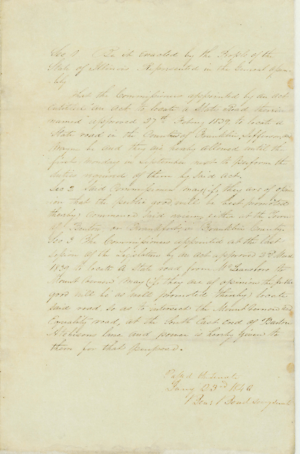 Sec 1 Be it enacted by the People of the
State of Illinois Represented in the General Assem-
bly
That the Commissioners appointed by an act
entitled an act to locate a State Road therein
named approved 27th Febry 1839 to locate a
State road in the Counties of Hamilton Jefferson, and
Wayne be and they are hereby allowed until the
first monday in september next to perform the
duties required of them by Said act,
Sec 2 Said Commissioners may if they are of opin-
ion that the public good will be best promoted
thereby Commence Said survey either at the Town
of or in Hamilton County
Sec 3 The Commissioners appointed at the last
session of the Legislature by an act approved 2nd March
1839 to locate a State road from to
Mount Vernon may if they are of opinion the public
good will be as well promoted thereby locate
said road so as to intersect the Mount Vernon &
Equality road, at the South East end of
lane and power is hereby given to
them for that purpose.
23rd 1840